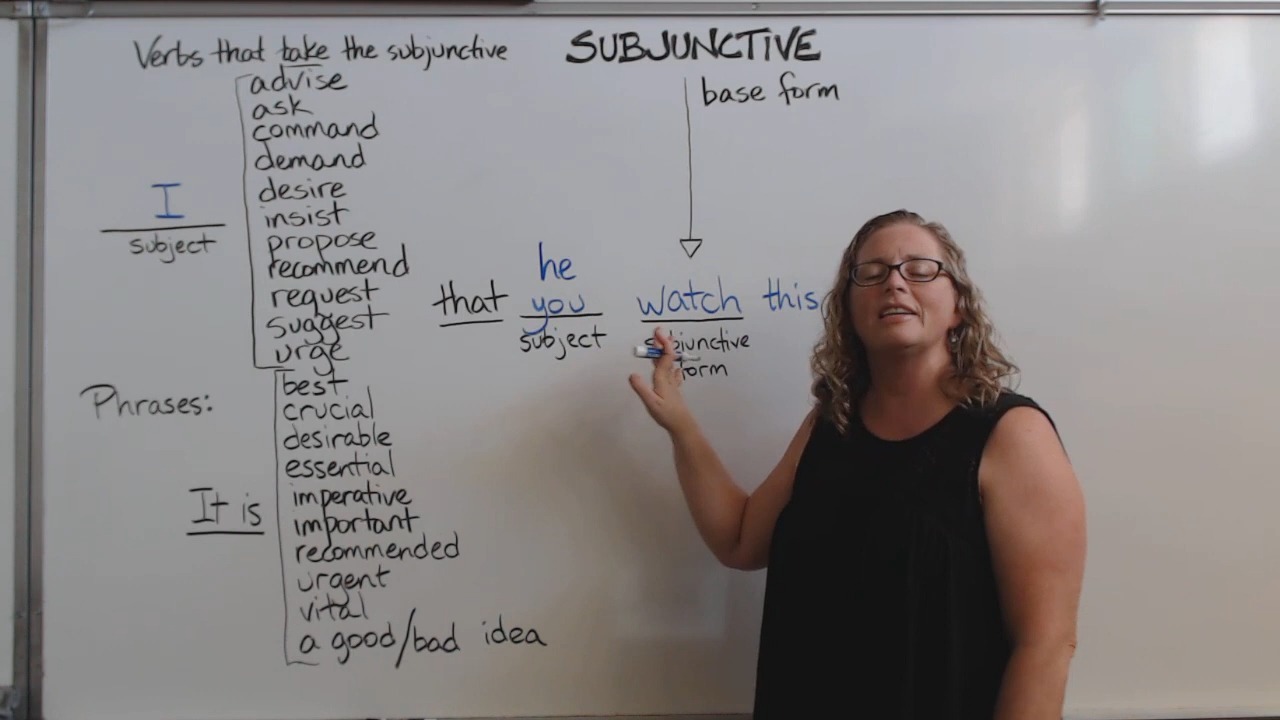 Verbs that take the subjunctive
SUBJUNCTIVE
base form
I
subject
advise
ask
command
demand
desire
insist
propose
recommend
request
suggest
urge
that
he
you
subject
watch this
subjunctive
form
Phrases:
It is
best
crucial
desirable
essential
imperative
important
recommended
urgent
vital
a good/bad idea